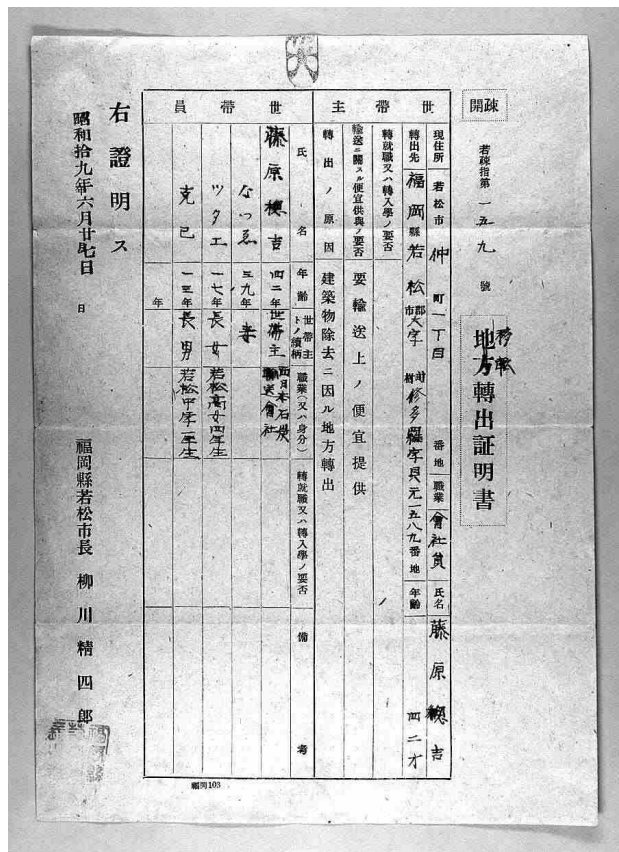 疎開
若疎指第一五九號
移転
地方轉出証明書
世帶主
現住所 若松市 仲町一丁目 番地 職業 會社員 氏名 藤原穂吉
轉出先 福岡縣若松 郡市 大字 町村 修多羅字長元一五八九番地 年齡 四二才
轉就職又ハ轉入學ノ要否
輸送ニ關スル便宜供與ノ要否 要輸送上ノ便宜提供
轉出ノ原因 建築物除去ニ因ル地方轉出
世帶員
氏名 年齡 世帶主トノ續柄 職業(又ハ身分) 轉就職又ハ轉入學ノ要否 備考
藤原穂吉 四二年 世帶主 西日本石炭輸送會社
なつゑ 三九年 妻
ツタエ 一七年 長女 若松高女四年生
克己 一三年 長男 若松中学一年生
年
右證明ス
昭和拾九年六月廿七日
日
福岡縣若松市長 柳川精四郎
福岡103